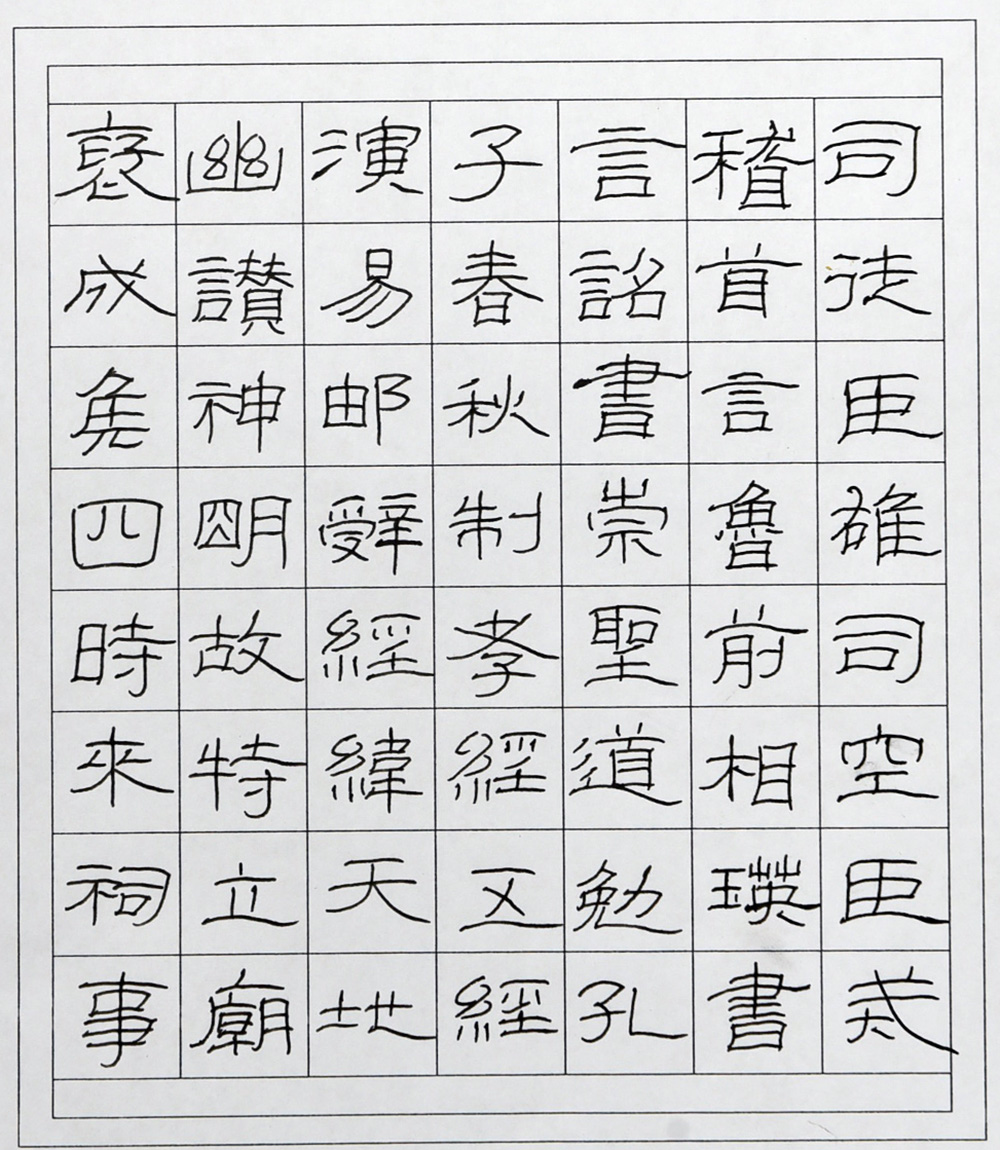 司徒臣雄司空臣戒
稽首言魯前相瑛書
言詔書崇聖道勉孔
子春秋制孝經五經
演易邮辭經緯天地
幽讚神明故特立廟
褒成侯四時來祠事